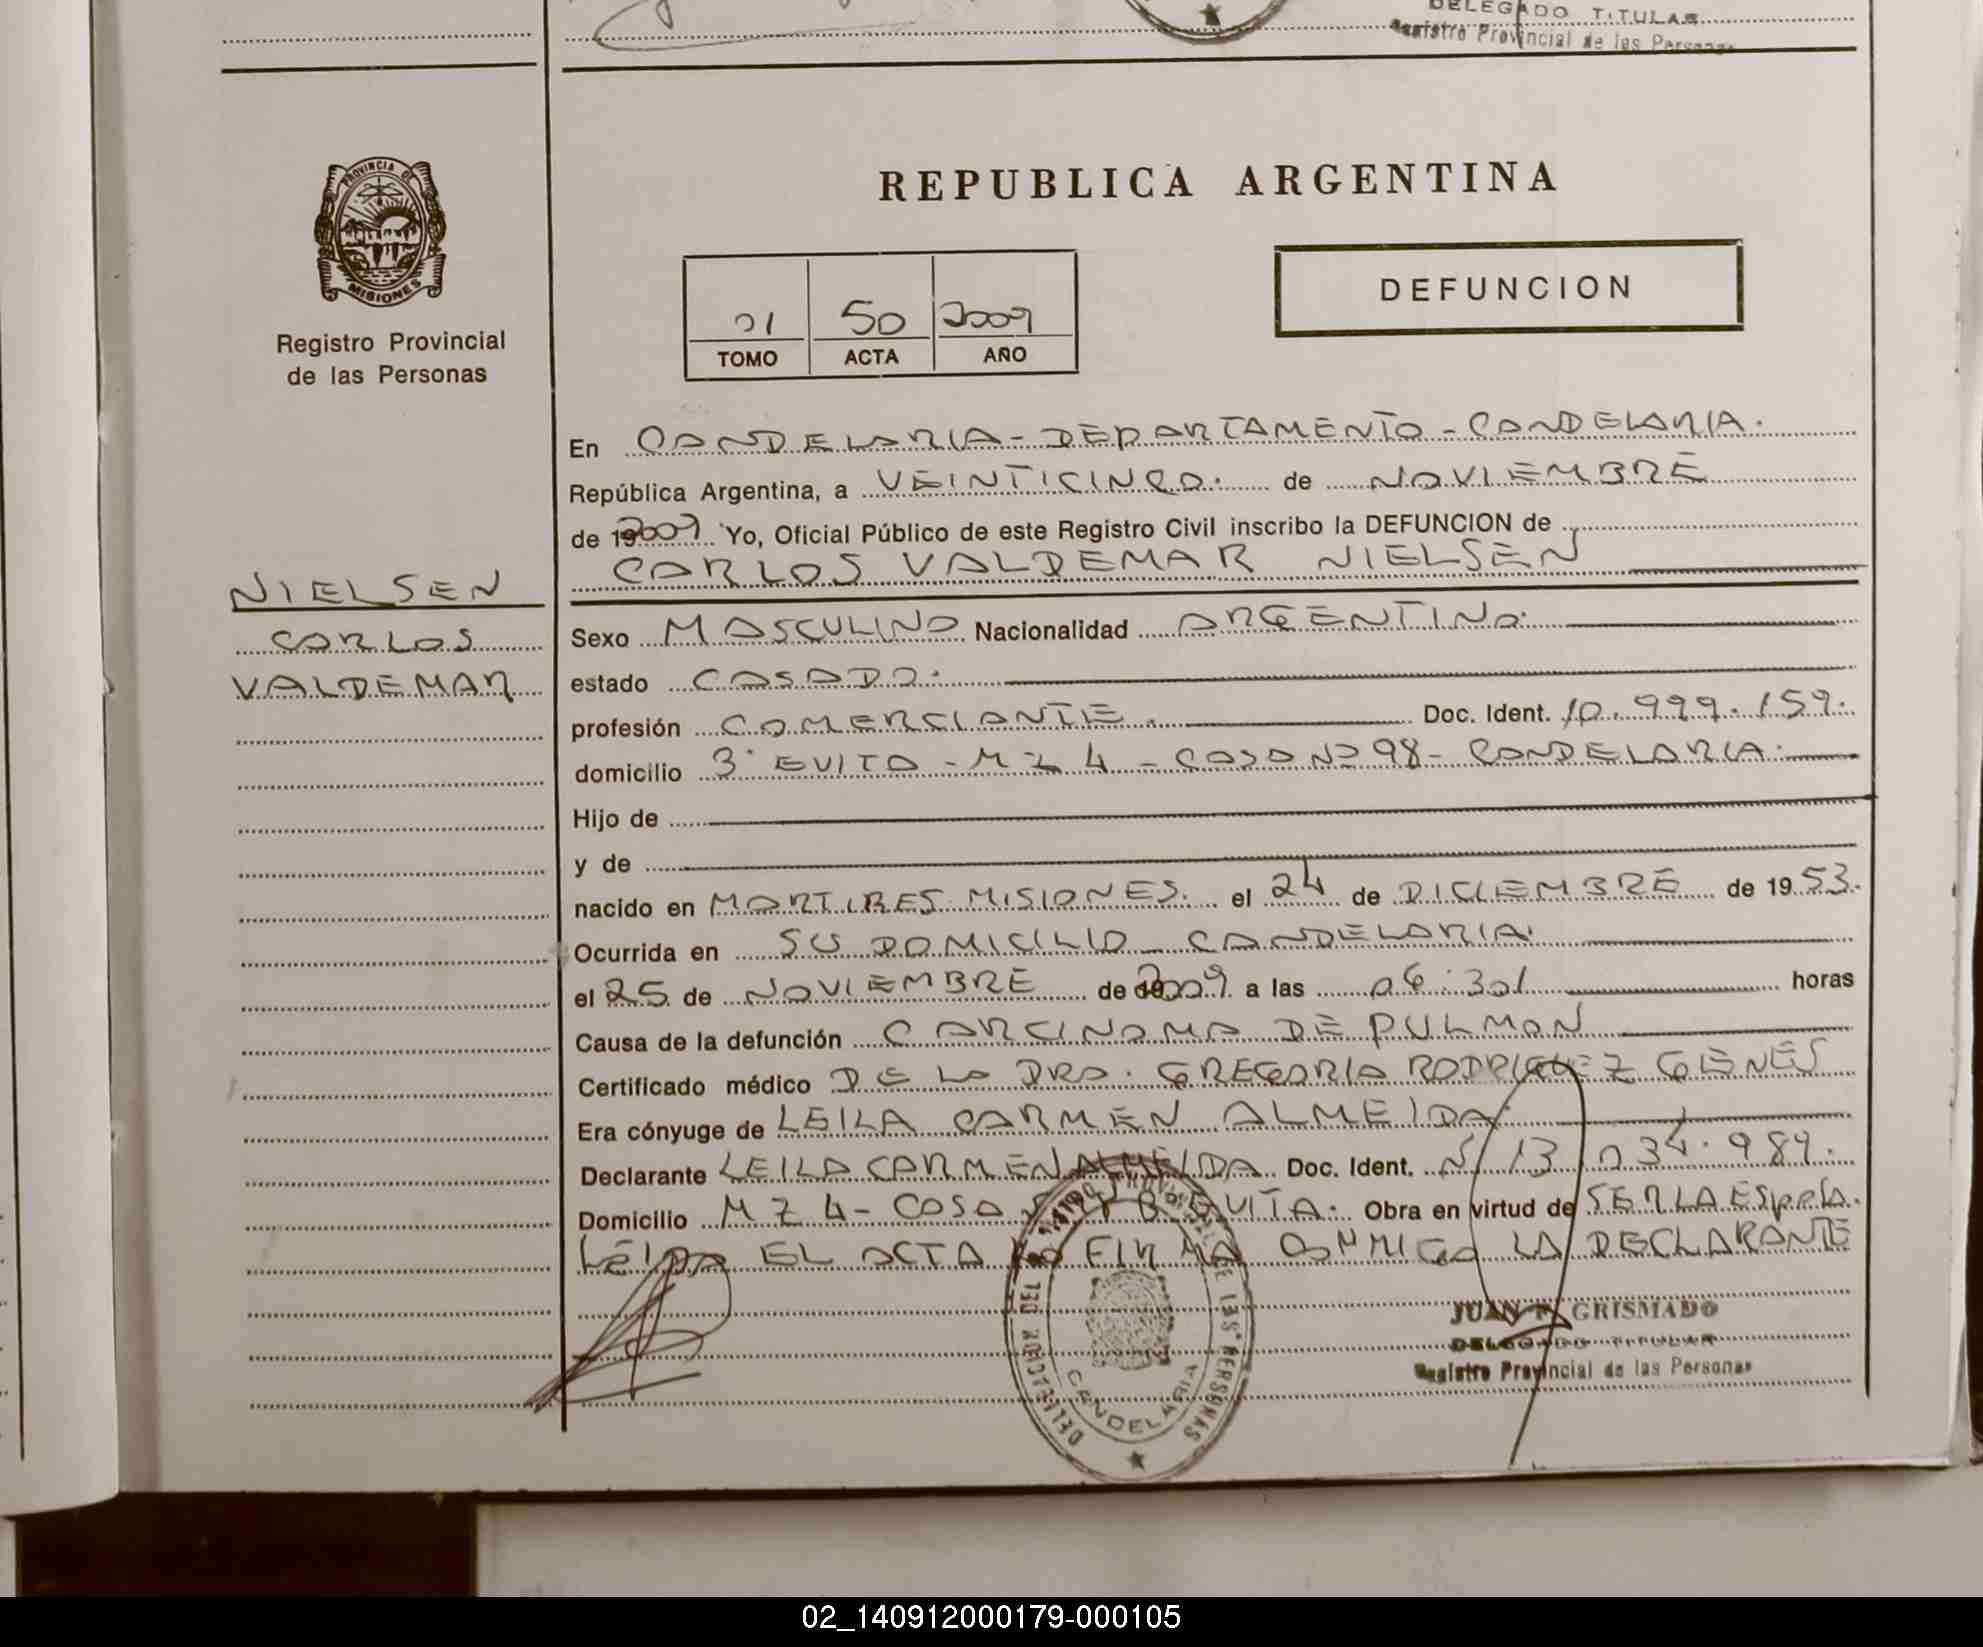 DELEGADO TITULAR
Registro Provincial de las Personas
PROVINCIA DE
MISIONES
Registro Provincial
de las Personas
REPUBLICA ARGENTINA
01 50 2009
TOMO ACTA AÑO
DEFUNCION
En CANDELARIA - DEPARTAMENTO - CANDELARIA.
República Argentina, a VEINTICINCO. de NOVIEMBRE
de 2009 Yo, Oficial Público de este Registro Civil inscribo la DEFUNCION de
CARLOS VALDEMAR NIELSEN
NIELSEN
CARLOS
VALDEMAR
Sexo MASCULINO Nacionalidad ARGENTINO.
estado CASADO.
profesión COMERCIANTE. Doc. Ident. 10.999.159.
domicilio 3° EVITA - MZ 4 - CASA Nº 98 - CANDELARIA.
Hijo de
y de
nacido en MARTIRES MISIONES. el 24 de DICIEMBRE de 1953.
Ocurrida en SU DOMICILIO CANDELARIA.
el 25 de NOVIEMBRE de 2009 a las 06:30 horas
Causa de la defunción CARCINOMA DE PULMON
Certificado médico DE LA DRA. GREGORIA RODRIGUEZ GENES
Era cónyuge de LEILA CARMEN ALMEIDA.
Declarante LEILA CARMEN ALMEIDA Doc. Ident. Nº 13.034.989.
Domicilio MZ 4 - CASA Nº 98 Bº EVITA. Obra en virtud de SER LA ESPOSA.
LEIDA EL ACTA LA FIRMA CONMIGO LA DECLARANTE
CANDELARIA
JUAN GRISMADO
DELEGADO TITULAR
Registro Provincial de las Personas
02_140912000179-000105